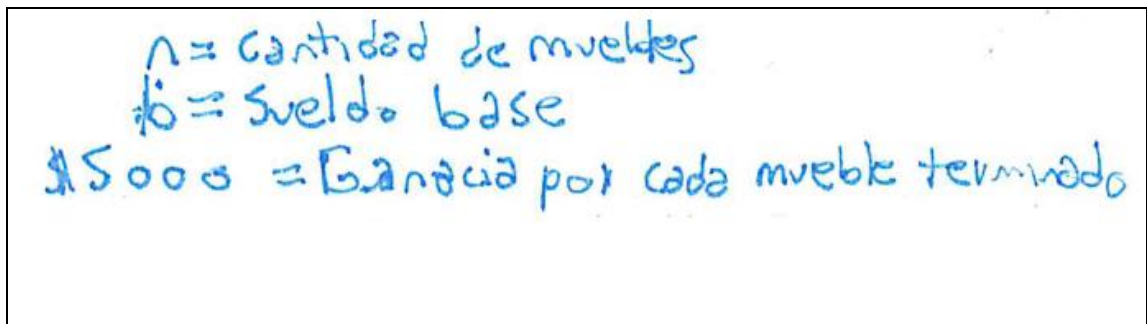 n = cantidad de muebles
b = sueldo base
$5000 = Ganacia por cada mueble terminado